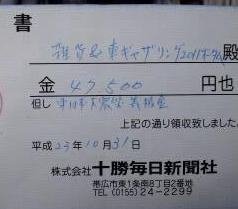 書
雑貨&車ギャザリング2011ホータム 殿
金 47,500 円也
但し 東日本大震災義援金
上記の通り領収致しました。
平成 23年 10月 31日
株式会社 十勝毎日新聞社
帯広市東1条南8丁目2番地
TEL (0155)24-2299